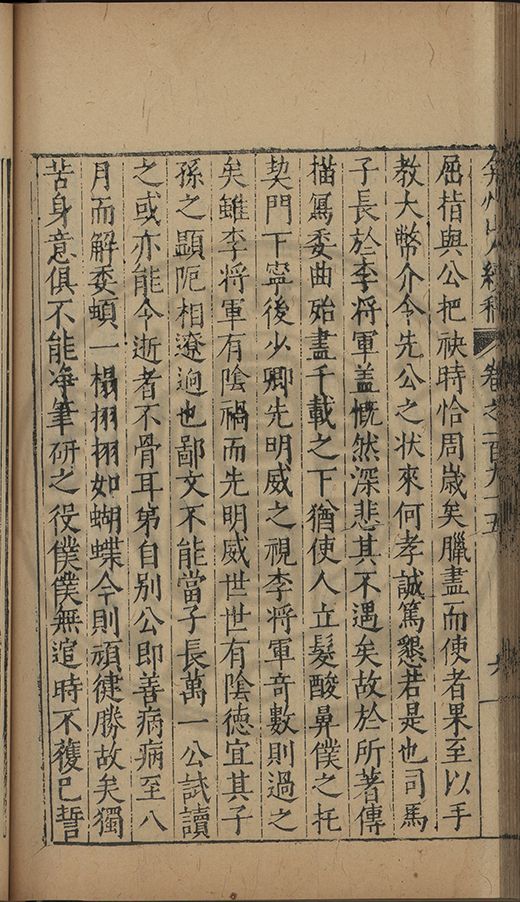 弇州山人續稿 卷之一百九十五
屈指與公把袂時恰周歲矣臘盡而使者果至以手
教大幣介令先公之狀來何孝誠篤懇若是也司馬
子長於李將軍盖慨然深悲其不遇矣故於所著傳
描寫委曲始盡千載之下猶使人立髮酸鼻僕之托
契門下寧後少卿先明威之視李將軍奇數則過之
矣雖李將軍有陰禍而先明威世世有陰德宜其子
孫之顯阨相遼逈也鄙文不能當子長萬一公試讀
之或亦能令逝者不骨耳第自別公即善病病至八
月而解委頓一榻栩栩如蝴蝶今則頑健勝故矣獨
苦身意俱不能淨筆研之役僕僕無逭時不獲已誓